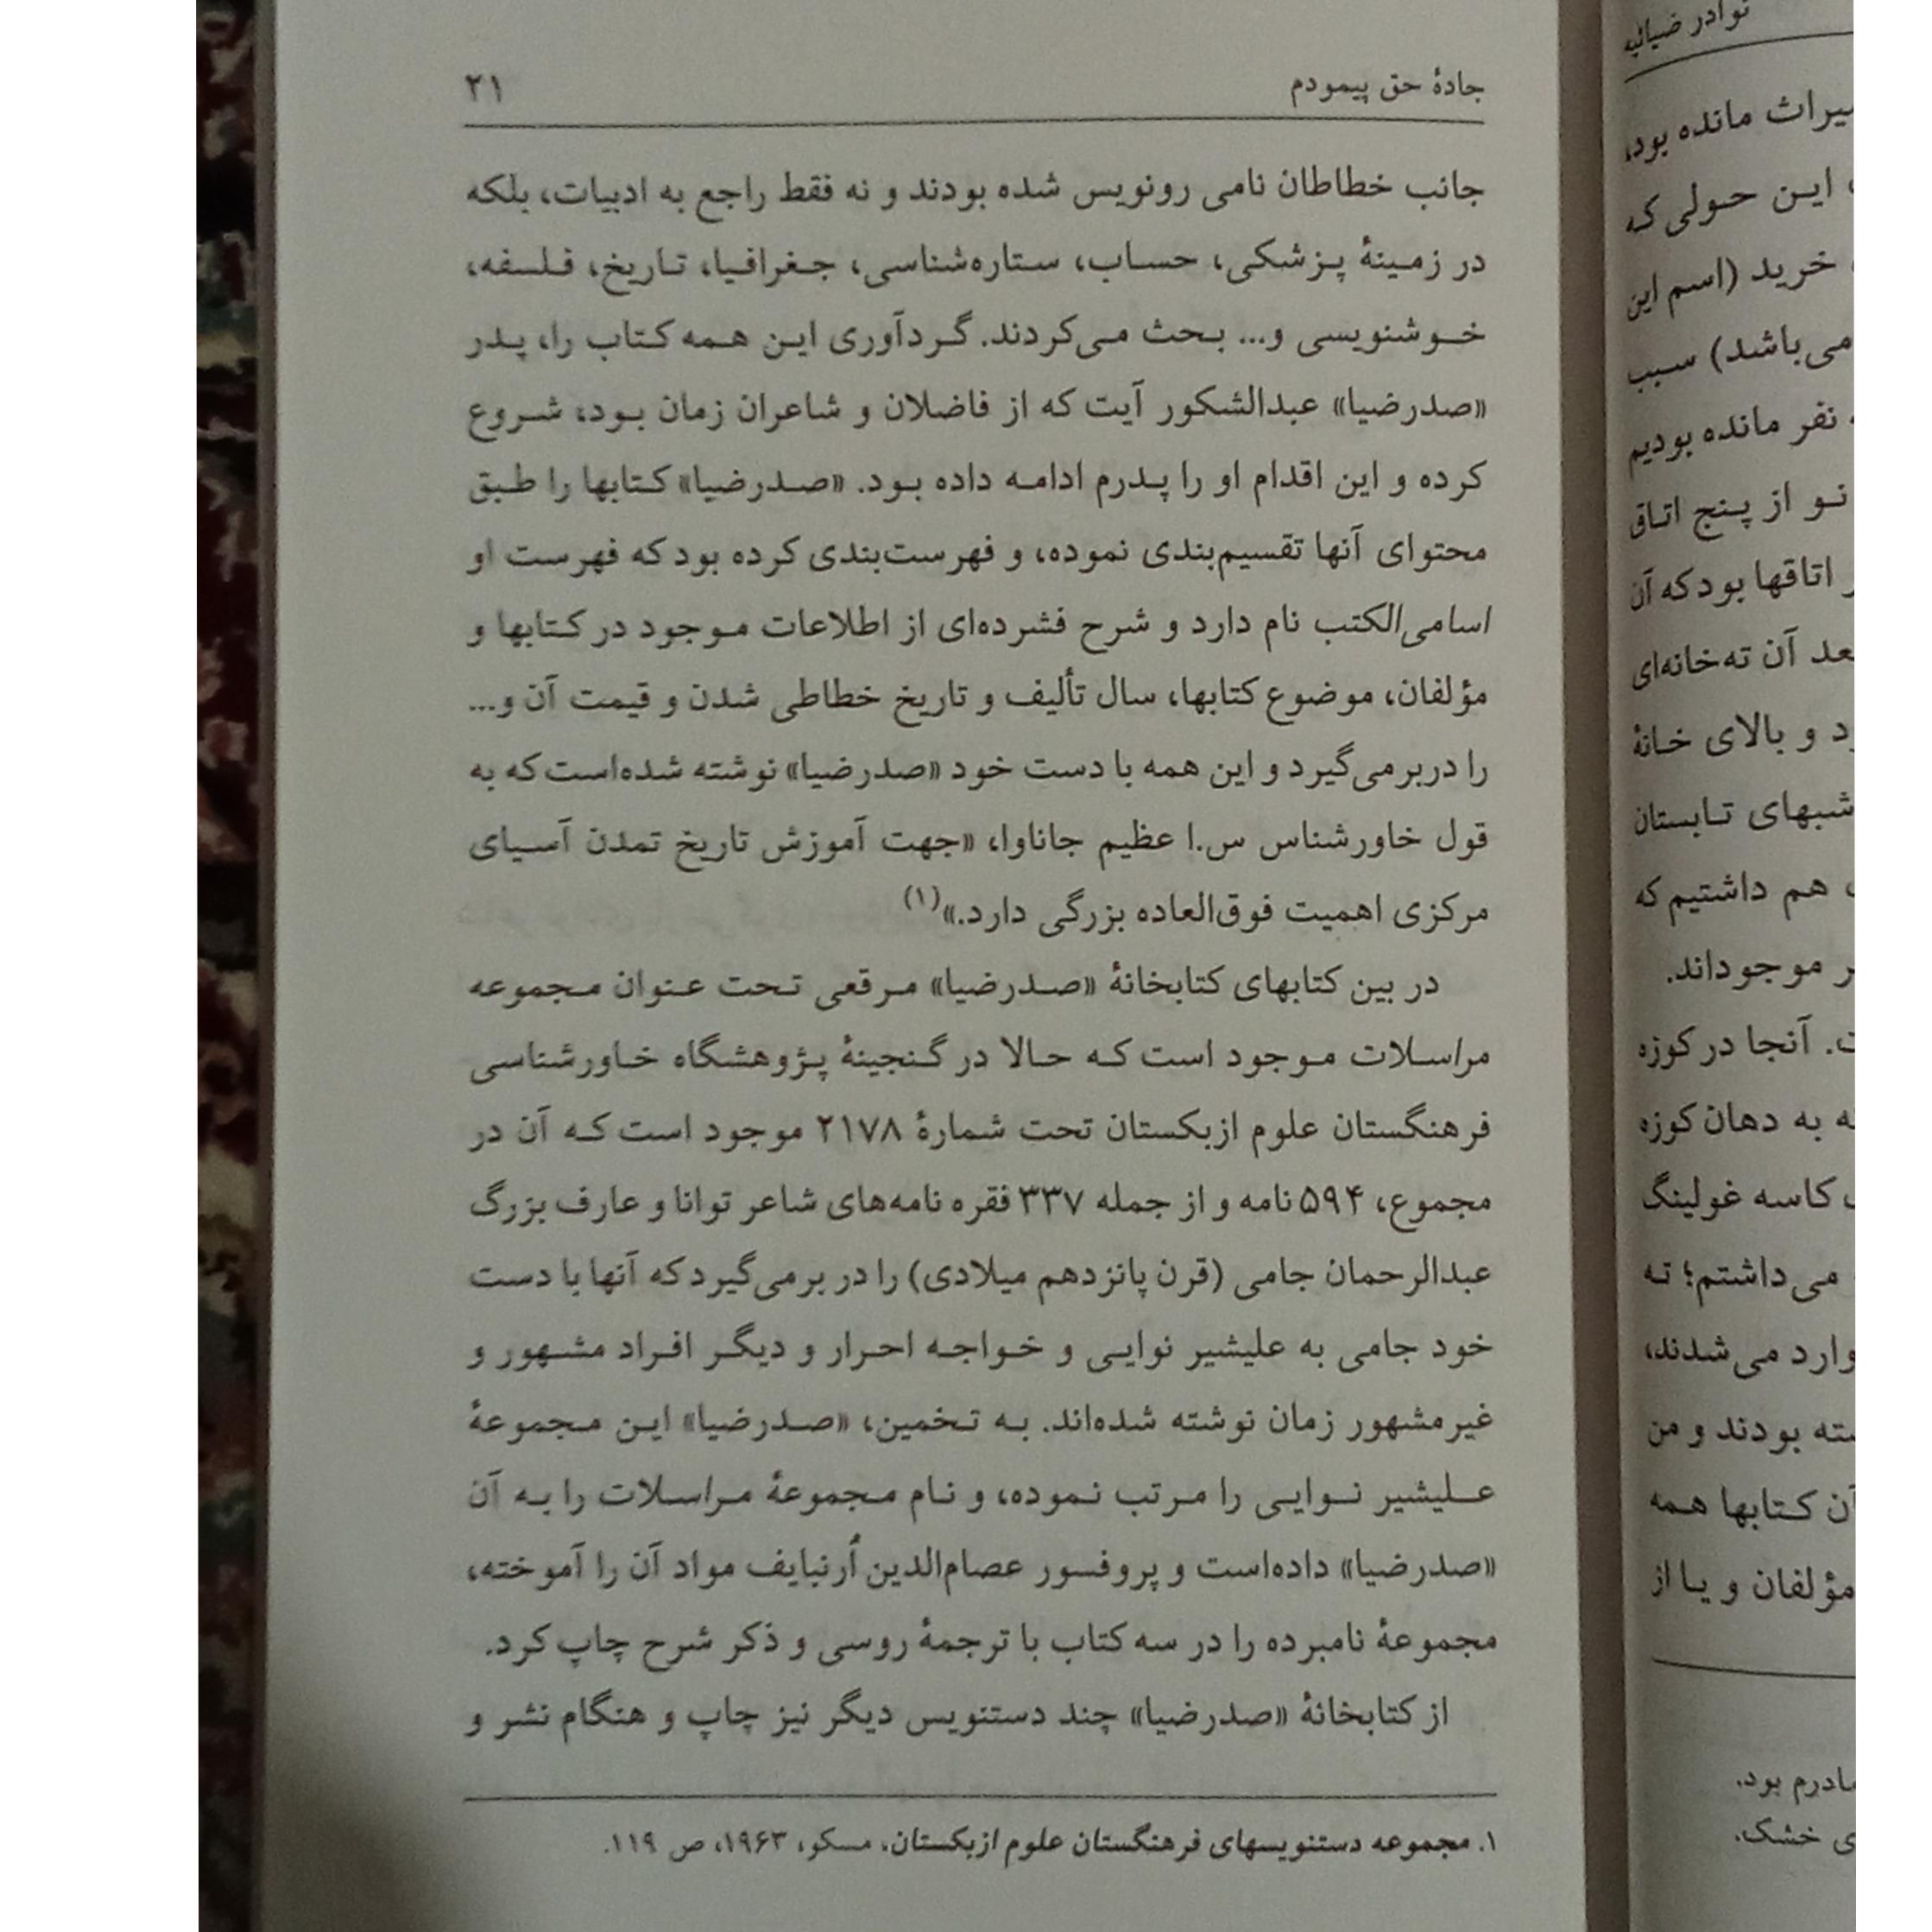 جادهٔ حق پیمودم ۲۱
جانب خطاطان نامی رونویس شده بودند و نه فقط راجع به ادبیات، بلکه
در زمینهٔ پزشکی، حساب، ستاره‌شناسی، جغرافیا، تاریخ، فلسفه،
خوشنویسی و... بحث می‌کردند. گردآوری این همه کتاب را، پدر
«صدرضیا» عبدالشکور آیت که از فاضلان و شاعران زمان بود، شروع
کرده و این اقدام او را پدرم ادامه داده بود. «صدرضیا» کتابها را طبق
محتوای آنها تقسیم‌بندی نموده، و فهرست‌بندی کرده بود که فهرست او
اسامی‌الکتب نام دارد و شرح فشرده‌ای از اطلاعات موجود در کتابها و
مؤلفان، موضوع کتابها، سال تألیف و تاریخ خطاطی شدن و قیمت آن و...
را دربر می‌گیرد و این همه با دست خود «صدرضیا» نوشته شده‌است که به
قول خاورشناس س.ا عظیم جاناوا، «جهت آموزش تاریخ تمدن آسیای
مرکزی اهمیت فوق‌العاده بزرگی دارد.»(۱)
در بین کتابهای کتابخانهٔ «صدرضیا» مرقعی تحت عنوان مجموعه
مراسلات موجود است که حالا در گنجینهٔ پژوهشگاه خاورشناسی
فرهنگستان علوم ازبکستان تحت شمارهٔ ۲۱۷۸ موجود است که آن در
مجموع، ۵۹۴ نامه و از جمله ۳۳۷ فقره نامه‌های شاعر توانا و عارف بزرگ
عبدالرحمان جامی (قرن پانزدهم میلادی) را در بر می‌گیرد که آنها با دست
خود جامی به علیشیر نوایی و خواجه احرار و دیگر افراد مشهور و
غیرمشهور زمان نوشته شده‌اند. به تخمین، «صدرضیا» این مجموعهٔ
علیشیر نوایی را مرتب نموده، و نام مجموعهٔ مراسلات را به آن
«صدرضیا» داده‌است و پروفسور عصام‌الدین اُرنبایف مواد آن را آموخته،
مجموعهٔ نامبرده را در سه کتاب با ترجمهٔ روسی و ذکر شرح چاپ کرد.
از کتابخانهٔ «صدرضیا» چند دستنویس دیگر نیز چاپ و هنگام نشر و
۱. مجموعه دستنویسهای فرهنگستان علوم ازبکستان، مسکو، ۱۹۶۳، ص ۱۱۹.
نوادر ضیائیه
میراث مانده بود،
این حولی که
خرید (اسم این
می‌باشد) سبب
نفر مانده بودیم
نو از پنج اتاق
اتاقها بود که آن
بعد آن ته‌خانه‌ای
و بالای خانهٔ
شبهای تابستان
هم داشتیم که
موجوداند.
آنجا در کوزه
به دهان کوزه
کاسه غولینگ
می‌داشتم؛ ته
وارد می‌شدند،
بودند و من
آن کتابها همه
مؤلفان و یا از
مادرم بود.
خشک.